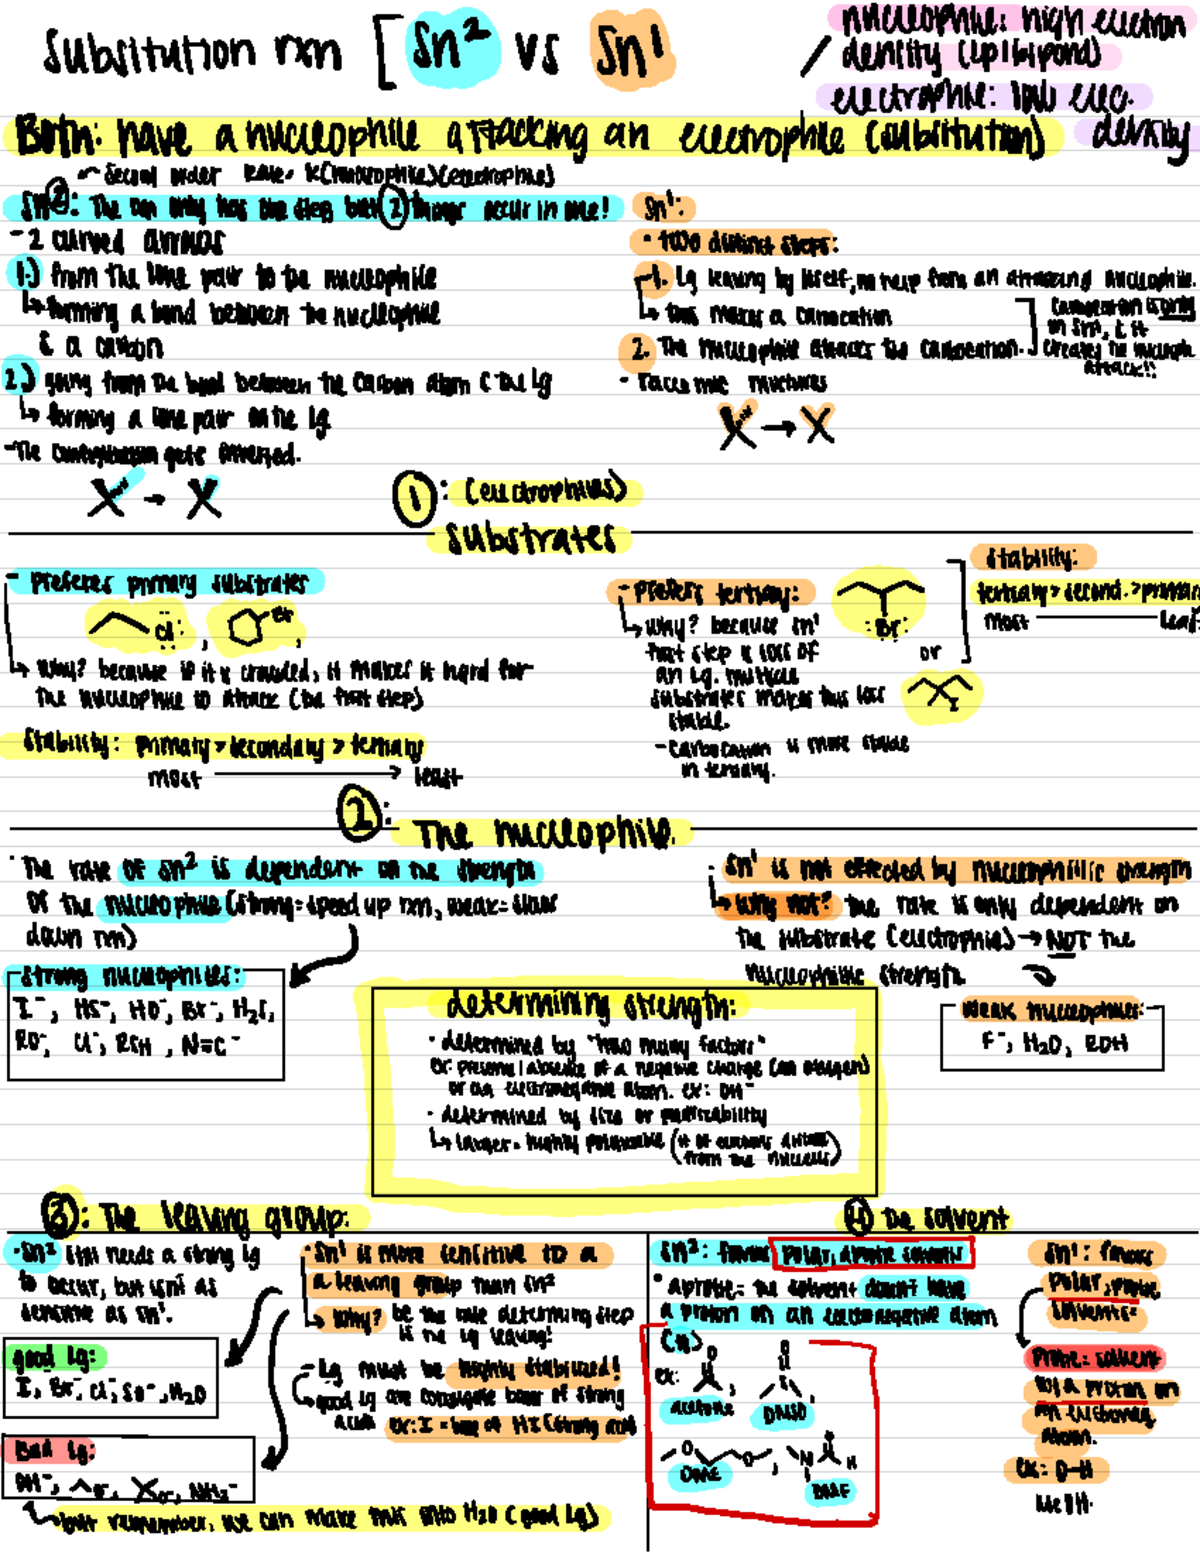 Subsitution rxn [ Sn² vs Sn¹
nucleophile: high electron
density (lp/bipond)
electrophile: low elec.
density
Both: have a nucleophile attacking an electrophile (substitution)
second order rate = k(nucleophile)(electrophile)
Sn②: The rxn only has one step but ② things occur in one!
- 2 curved arrows
1.) from the lone pair to the nucleophile
↳ forming a bond between the nucleophile
& a carbon
2.) going from the bond between the carbon atom & the lg
↳ forming a lone pair on the lg
- The configuration gets inverted.
Sn¹:
• two distinct steps:
1. Lg leaving by itself, no help from an attacking nucleophile.
↳ this makes a carbocation
carbocation is only
in Sn¹, & it
creates the nucleoph.
attack!!
2. The nucleophile attacks the carbocation.
- racemic mixtures
①: (electrophiles)
substrates
- preferes primary substrates
Cl: , Br ,
↳ why? because if it's crowded, it makes it hard for
the nucleophile to attack (the first step)
Stability: primary > secondary > tertiary
most → least
- prefers tertiary:
↳ why? because Sn¹
first step is loss of
an Lg. multiple
substrates makes this less
stable.
- carbocation is more stable
in tertiary.
:Br:
or
I
stability:
tertiary > second. > primary
most least
②: The nucleophile.
• The rate of Sn² is dependent on the strength
of the nucleophile (strong = speed up rxn, weak = slow
down rxn)
strong nucleophiles:
I⁻, HS⁻, HO⁻, Br⁻, H₂S,
RO⁻, Cl⁻, RSH, N≡C⁻
• Sn¹ is not effected by nucleophillic strength
↳ why not? the rate is only dependent on
the substrate (electrophile) → NOT the
nucleophilic strength.
weak nucleophiles:
F⁻, H₂O, ROH
determining strength:
• determined by "two many factors"
ex: presence/absence of a negative charge (an oxygen)
or an electronegative atom. ex: OH⁻
• determined by size or polarizability
↳ larger = highly polarizable (# of electrons distant
from the nucleus)
③: The leaving group:
• Sn² still needs a strong lg
to occur, but isnt as
sensitive as Sn¹.
good lg:
I⁻, Br⁻, Cl⁻, SO⁻, H₂O
Bad lg:
OH⁻, O⁻, O⁻, NH₂⁻
↳ but remember, we can make this into H₂O (good Lg)
• Sn¹ is more sensitive to a
a leaving group than Sn²
↳ Why? bc the rate determining step
is the lg leaving!
- Lg must be highly stabilized!
↳ good lg are conjugate bases of strong
acids ex: I⁻ = base of HI (strong acid
④ The solvent
Sn²: favors polar, aprotic solvents
• aprotic = the solvent doesn't have
a proton on an electronegative atom
ex:
O
acetone ,
O
S
DMSO ,
O O
DME ,
O
N H
DMF
Sn¹: favors
polar, protic
solvents.
protic = solvent
w/ a proton on
an electroneg
atom.
ex: O-H
MeOH.